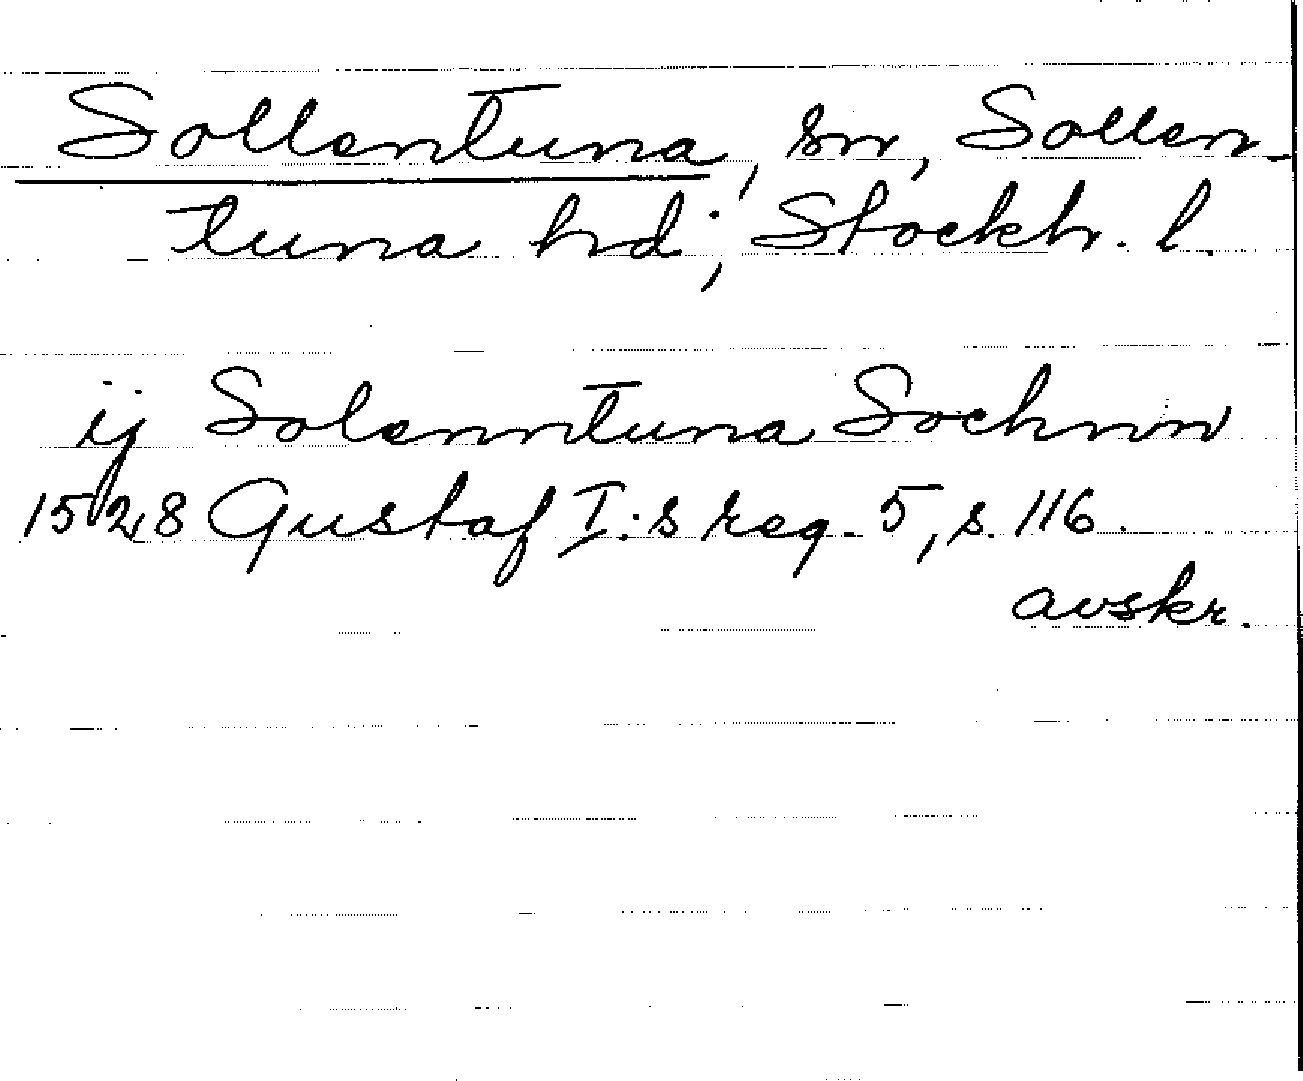 Sollentuna, sn, Sollen-
tuna hd, Stockh. l.
ij Solenntuna Sochnn
1528 Gustaf I:s reg. 5, s. 116.
avskr.